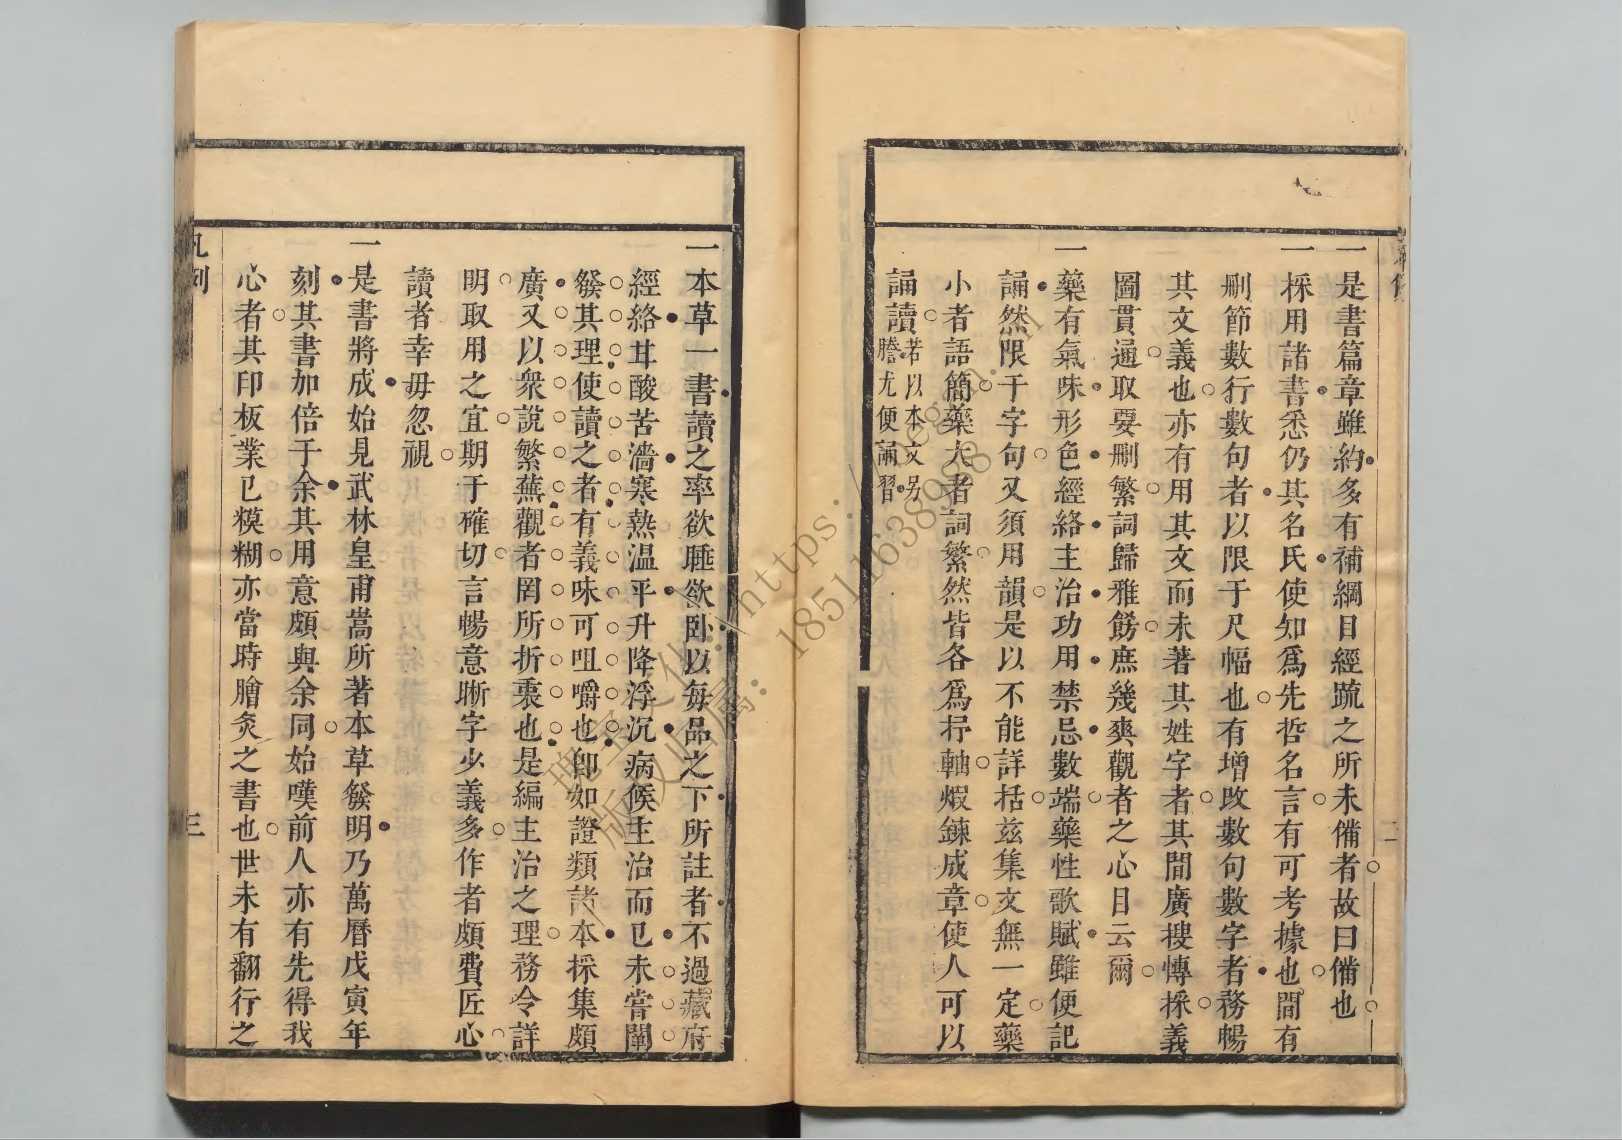 一是書篇章雖約多有補綱目經疏之所未備者故曰備也
一採用諸書悉仍其名氏使知爲先哲名言有可考據也間有
刪節數行數句者以限于尺幅也有增改數句數字者務暢
其文義也亦有用其文而未著其姓字者其間廣搜慱採義
圖貫通取要刪繁詞歸雅飭庶幾爽觀者之心目云爾
一藥有氣味形色經絡主治功用禁忌數端藥性歌賦雖便記
誦然限于字句又須用韻是以不能詳括兹集文無一定藥
小者語簡藥大者詞繁然皆各爲抒軸煆鍊成章使人可以
誦讀若以本文另謄尤便誦習
二
一本草一書讀之率欲睡欲卧以每品之下所註者不過藏府
經絡甘酸苦濇寒熱温平升降浮沉病候主治而已未嘗闡
發其理使讀之者有義味可咀嚼也卽如證類諸本採集頗
廣又以衆說繁蕪觀者罔所折衷也是編主治之理務令詳
明取用之宜期于確切言暢意晰字少義多作者頗費匠心
讀者幸毋忽視
一是書將成始見武林皇甫嵩所著本草發明乃萬曆戊寅年
刻其書加倍于余其用意頗與余同始嘆前人亦有先得我
心者其印板業已糢糊亦當時膾炙之書也世未有翻行之
凡例
三
瑰宝文化:https://
版权归属:18511638993